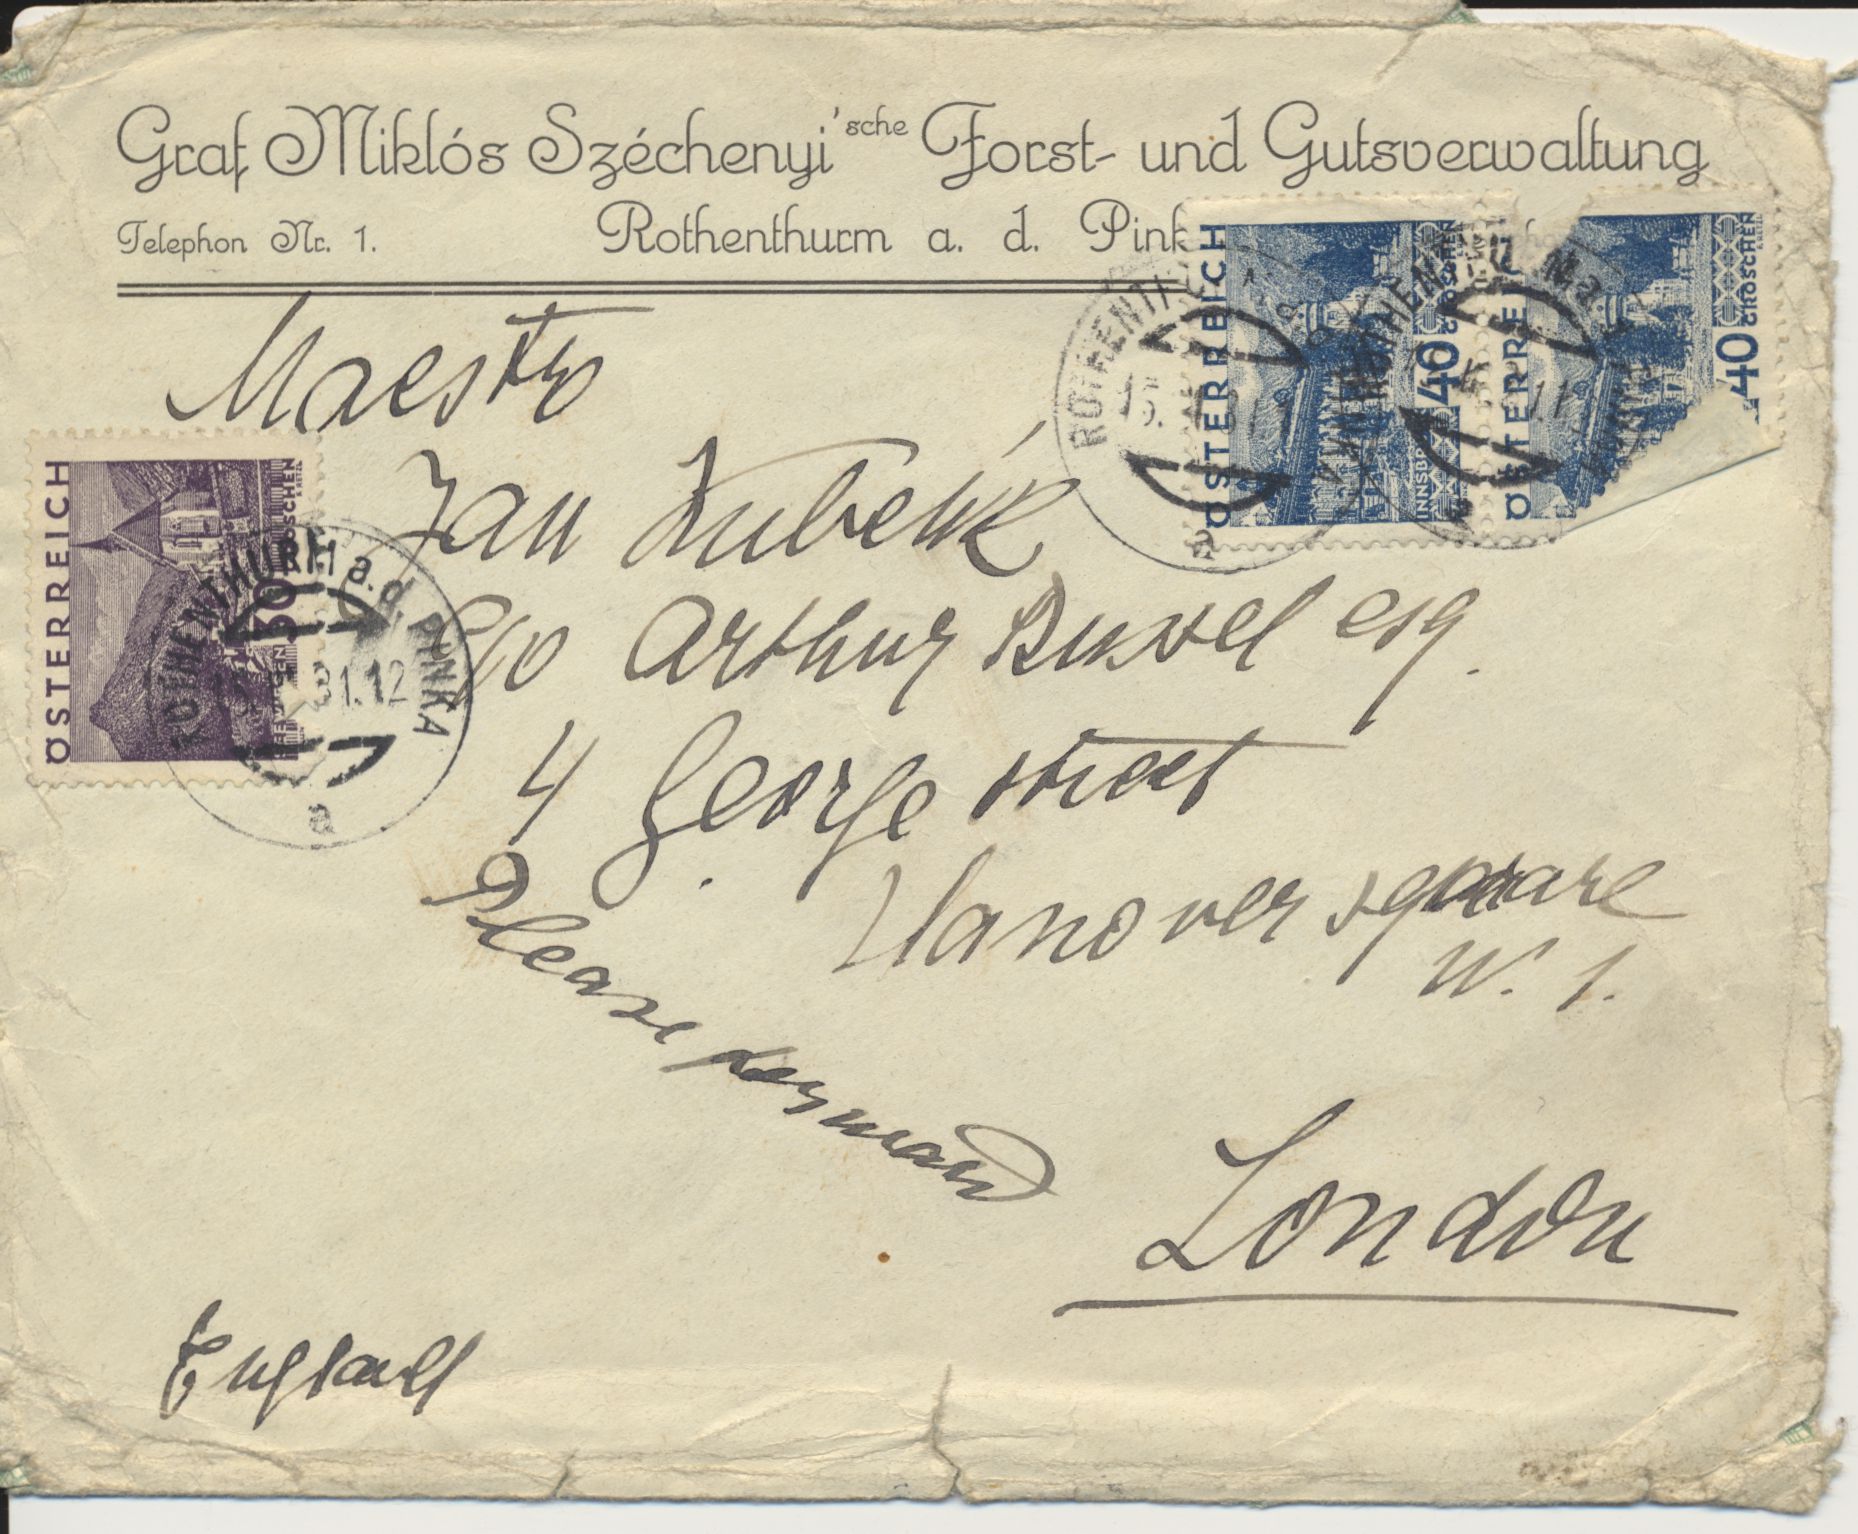 Graf Miklós Széchenyi'sche Forst- und Gutsverwaltung
Telephon Nr. 1.
Rothenthurm a. d. Pink
Maestro
Jan Kubelik
c/o Arthur Russel esq.
4 George street
Hanover square
W. 1.
Please forward
London
England
ÖSTERREICH
30
GROSCHEN
ROTHENTHURM a.d. PINKA
31.12
a
ÖSTERREICH
40
GROSCHEN
INNSBR
ÖSTERRE
40
GROSCHEN
ROTHENTH
a